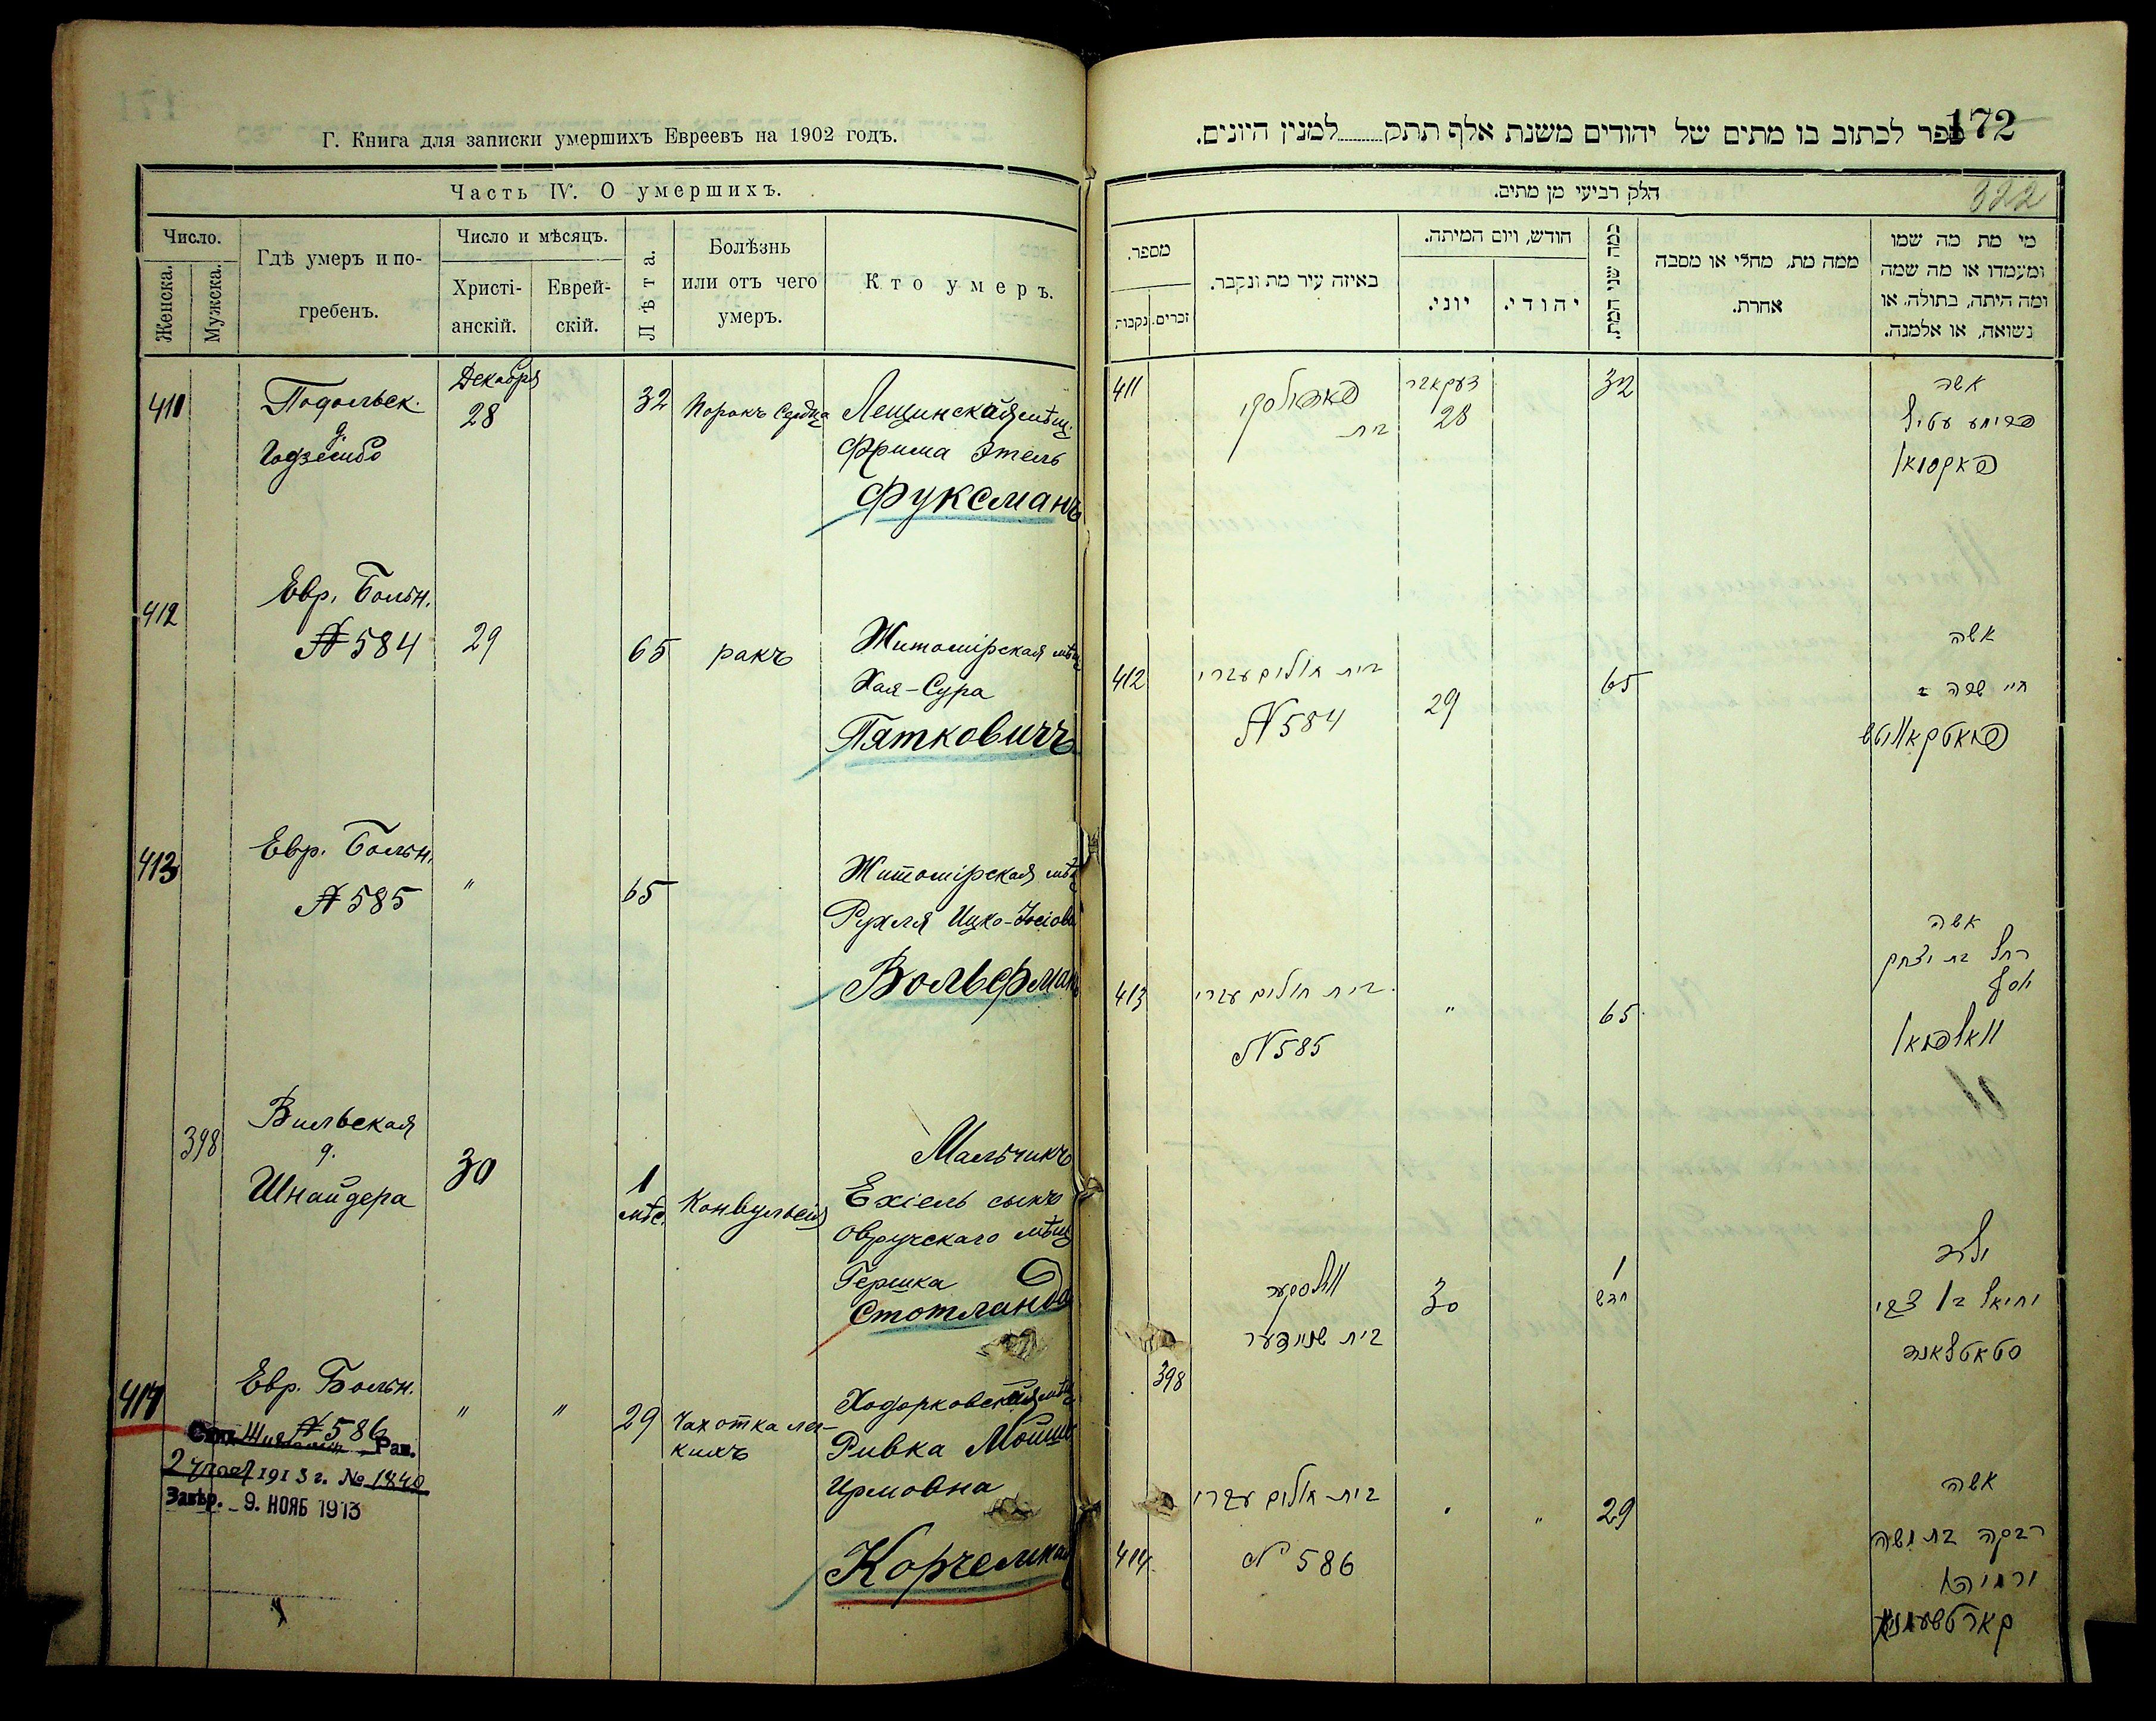 Г. Книга для записки умершихъ Евреевъ на 1902 годъ.
Часть IV. О умершихъ.
Число.
Женска.
Мужска.
Гдѣ умеръ и по-
гребенъ.
Число и мѣсяцъ.
Христі-
анскій.
Еврей-
скій.
Лѣта.
Болѣзнь
или отъ чего
умеръ.
Кто умеръ.
411
Подольск.
д.
Годзембо
Декабря
28
32
Порокъ сердца
Лещинская мѣщ.
Фрима Этель
Фуксманъ
412
Евр. Больн.
№ 584
29
65
ракъ
Житомірская мѣщ
Хая-Сура
Пятковичъ
413
Евр. Больн.
№ 585
"
65
Житомірская мѣщ
Рухля Ицко-Іосіова
Вольфманъ
398
Вильская
д.
Шнайдера
30
1
мѣс.
Конвульсія
Мальчикъ
Ехіель сынъ
Овручскаго мѣщ
Гершка
Стотланда
414
Евр. Больн.
№ 586
"
"
29
Чахотка лег-
кихъ
Ходорковская мѣщ
Ривка Мойше
Ирмовна
Корчемная
Рав.
1913 г. № 1840
Завѣр. 9. НОЯБ 1913
172
ספר לכתוב בו מתים של יהודים משנת אלף תתק למנין היונים.
322
חלק רביעי מן מתים.
מספר.
נקבות
זכרים.
באיזה עיר מת ונקבר.
חודש, ויום המיתה.
יוני.
יהודי.
כמה שני המת.
ממה מת, מחלי או מסבה
אחרת.
מי מת מה שמו
ומעמדו או מה שמה
ומה היתה, בתולה, או
נשואה, או אלמנה.
411
בית
דעקאבר
28
32
אשה
פרימע עטיל
פאקסמאן
412
בית חולים עברי
N 584
29
65
אשה
חי' שרה
פיאטקאוויטש
413
בית חולים עברי
N 585
"
65
אשה
רחל בת יצחק
יוסף
וואלפמאן
398
ווילסקער
בית שניידער
30
1
חדש
ילד
יחיאל בן צבי
סטאטלאנד
414
בית חולים עברי
N 586
"
"
29
אשה
רבקה בת משה
ירמיהו